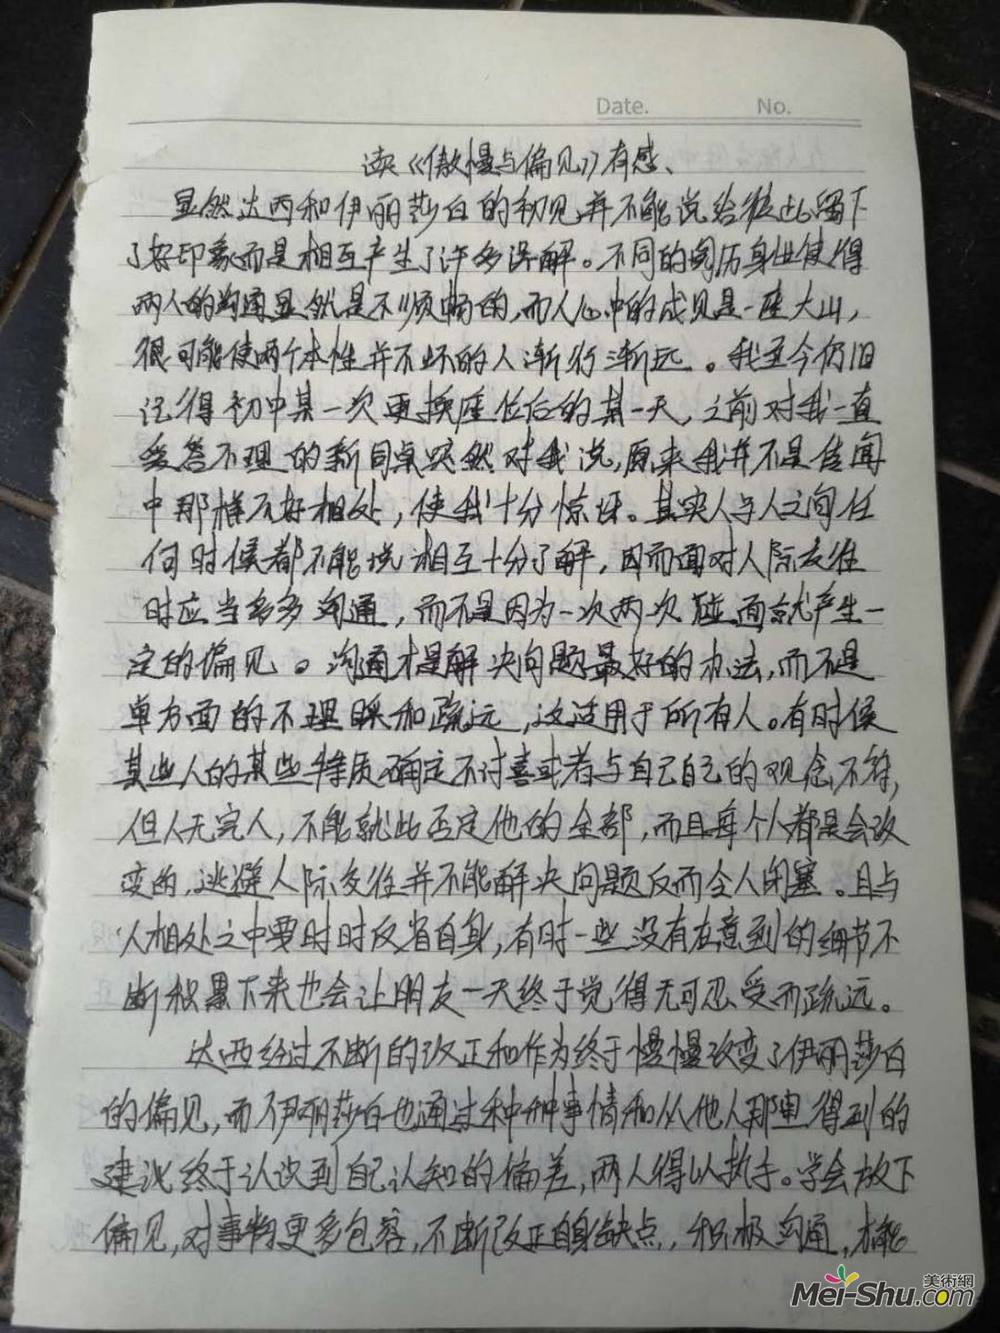 Date. No.
读《傲慢与偏见》有感、
显然达西和伊丽莎白的初见并不能说给彼此留下
了好印象而是相互产生了许多误解。不同的阅历身世使得
两人的沟通显然是不顺畅的,而人心中的成见是一座大山,
很可能使两个本性并不坏的人渐行渐远。我至今仍旧
记得初中某一次更换座位后的某一天,之前对我一直
爱答不理的新同桌突然对我说,原来我并不是传闻
中那样不好相处,使我十分惊讶。其实人与人之间任
何时候都不能说相互十分了解,因而面对人际交往
时应当多多沟通,而不是因为一次两次碰面就产生一
定的偏见。沟通才是解决问题最好的办法,而不是
单方面的不理睬和疏远,这适用于所有人。有时候
某些人的某些特质确定不讨喜或者与自己自己的观念不符,
但人无完人,不能就此否定他的全部,而且每个人都是会改
变的,逃避人际交往并不能解决问题反而令人闭塞。且与
人相处之中要时时反省自身,有时一些没有在意到的细节不
断积累下来也会让朋友一天终于觉得无可忍受而疏远。
达西经过不断的改正和作为终于慢慢改变了伊丽莎白
的偏见,而伊丽莎白也通过种种事情和从他人那里得到的
建议终于认识到自己认知的偏差,两人得以执手。学会放下
偏见,对事物更多包容,不断改正自身缺点,积极沟通,才能
美術網
Mei-Shu.com